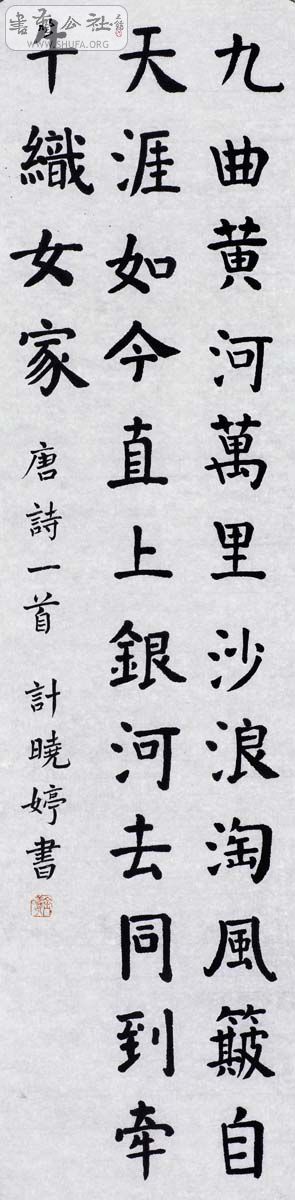 九曲黄河萬里沙浪淘風簸自
天涯如今直上銀河去同到牵
牛織女家
唐詩一首 計曉婷書
WWW.SHUFA.ORG